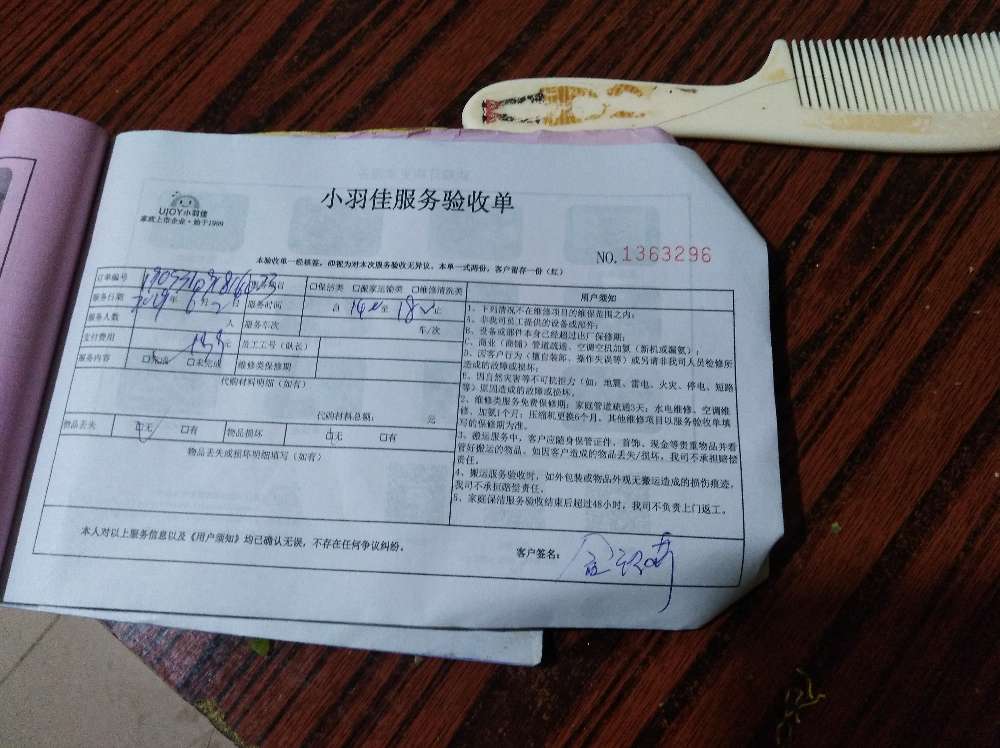 UJOY小羽佳
家政上市企业·始于1999
小羽佳服务验收单
NO.1363296
本验收单一经核签,即视为对本次服务验收无异议。本单一式两份,客户留存一份(红)
订单编号
□保洁类 □搬家运输类 □维修清洗类
服务日期 2019年 6月2日 服务时间 自 14 至 18 止
服务人数 人 服务车次 车/次
支付费用 元 员工工号(队长)
服务内容 □完成 □未完成 维修类保修期
代购材料明细(如有)
代购材料总额: 元
物品丢失 □无 □有 物品损坏 □无 □有
物品丢失或损坏明细填写(如有)
用户须知
1、下列情况不在维修项目的维保范围之内:
A、非我司员工提供的设备或部件;
B、设备或部件本身已经超过出厂保修期;
C、商业(商铺)管道疏通、空调空机加氨(新机或漏氨);
D、因客户行为(擅自装卸、操作失误等)或另请非我司人员检修所
造成的故障或损坏;
E、因自然灾害等不可抗拒力(如:地震、雷电、火灾、停电、短路
等)原因造成的故障或损坏。
2、维修类服务免费保修期:家庭管道疏通3天;水电维修、空调维
修、加氨1个月;压缩机更换6个月、其他维修项目以服务验收单填
写的保修期为准。
3、搬运服务中,客户应随身保管证件、首饰、现金等贵重物品并看
管好搬运的物品。如因客户造成的物品丢失/损坏,我司不承担赔偿
责任。
4、搬运服务验收时,如外包装或物品外观无搬运造成的损伤痕迹,
我司不承担赔偿责任。
5、家庭保洁服务验收结束后超过48小时,我司不负责上门返工。
本人对以上服务信息以及《用户须知》均已确认无误,不存在任何争议纠纷。
客户签名: